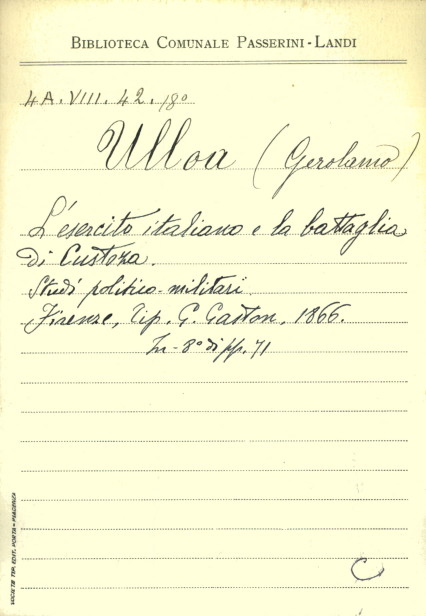 BIBLIOTECA COMUNALE PASSERINI-LANDI
4A. VIII. 42. 18º
Ulloa (Gerolamo)
L'esercito italiano e la battaglia
di Custoza.
Studi politico-militari.
Firenze, Tip. G. Gaston, 1866.
In-8º di pp. 71
C
SOCIETÀ TIP. EDIT. PORTA - PIACENZA